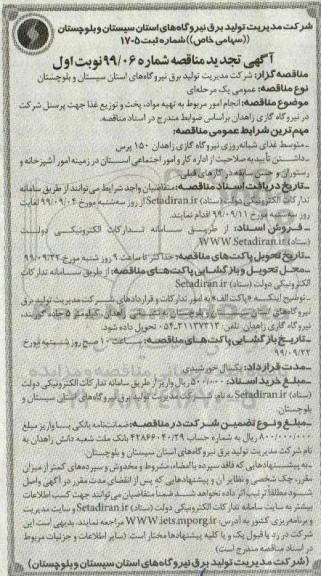 شرکت مدیریت تولید برق نیروگاه‌های استان سیستان و بلوچستان
((سهامی خاص)) شماره ثبت ۱۷۰۵
آگهی تجدید مناقصه شماره ۹۹/۰۶ نوبت اول
مناقصه گزار: شرکت مدیریت تولید برق نیروگاه‌های استان سیستان و بلوچستان
نوع مناقصه: عمومی یک مرحله‌ای
موضوع مناقصه: انجام امور مربوط به تهیه مواد، پخت و توزیع غذا جهت پرسنل شرکت
در نیروگاه گازی زاهدان براساس ضوابط مندرج در اسناد مناقصه.
مهم ترین شرایط عمومی مناقصه:
ـ متوسط غذای شبانه‌روزی نیروگاه گازی زاهدان ۱۵۰ پرس
ـ داشتن تأییدیه صلاحیت از اداره کار و امور اجتماعی استان در زمینه امور آشپزخانه و
رستوران و حسن سابقه در کارهای قبلی.
ـ تاریخ دریافت اسناد مناقصه: متقاضیان واجد شرایط می‌توانند از طریق سامانه
تدارکات الکترونیکی دولت (ستاد) Setadiran.ir از روز سه‌شنبه مورخ ۹۹/۰۹/۰۴ لغایت
روز سه‌شنبه مورخ ۹۹/۰۹/۱۱ اقدام نمایند.
ـ فروش اسناد: از طریق سامانه تدارکات الکترونیکی دولت
(ستاد) WWW.Setadiran.ir
ـ تاریخ تحویل پاکت‌های مناقصه: حداکثر تا ساعت ۹ روز شنبه مورخ ۹۹/۰۹/۲۲
ـ محل تحویل و بازگشایی پاکت‌های مناقصه: از طریق سامانه تدارکات
الکترونیکی دولت (ستاد) Setadiran.ir
ـ توضیح اینکه «پاکت الف» به امور تدارکات و قراردادهای شرکت مدیریت تولید برق
نیروگاه‌های استان سیستان و بلوچستان به نشانی زاهدان، کیلومتر ۵ جاده
نیروگاه گازی زاهدان، تلفن: ۳۱۱۳۷۳۱۳-۰۵۴ تحویل داده شود.
ـ تاریخ بازگشایی پاکت‌های مناقصه: ساعت ۱۰ صبح روز شنبه مورخ
۹۹/۰۹/۲۲
ـ مدت قرارداد: یکسال خورشیدی
ـ مبلغ خرید اسناد: ۵۰۰/۰۰۰ ریال واریز از طریق سامانه تدارکات الکترونیکی دولت
(ستاد) Setadiran.ir به نام شرکت مدیریت تولید برق نیروگاه‌های استان سیستان و
بلوچستان.
ـ مبلغ و نوع تضمین شرکت در مناقصه: ضمانت‌نامه بانکی یا واریز مبلغ
۸۰۰/۰۰۰/۰۰۰ ریال به شماره حساب ۴۲۸۶۶۰۴۰/۲۹ بانک ملت شعبه دانش زاهدان به
نام شرکت مدیریت تولید برق نیروگاه‌های استان سیستان و بلوچستان.
ـ به پیشنهادهایی که فاقد سپرده یا امضاء، مشروط و مخدوش و سپرده‌های کمتر از میزان
مقرر، چک شخصی و نظایر آن و پیشنهادهایی که پس از انقضای مدت مقرر در آگهی واصل
شود مطلقاً ترتیب اثر داده نخواهد شد. ضمناً متقاضیان می‌توانند جهت کسب اطلاعات
بیشتر به سایت سامانه تدارکات الکترونیکی دولت (ستاد) Setadiran.ir و سایت مدیریت
و برنامه‌ریزی کشور به آدرس: WWW.iets.mporg.ir مراجعه نمایند. بدیهی است این
شرکت در رد یا قبول یک و یا کلیه پیشنهادها مختار است. (سایر اطلاعات و جزئیات مربوط
در اسناد مناقصه مندرج است)
(شرکت مدیریت تولید برق نیروگاه‌های استان سیستان و بلوچستان)